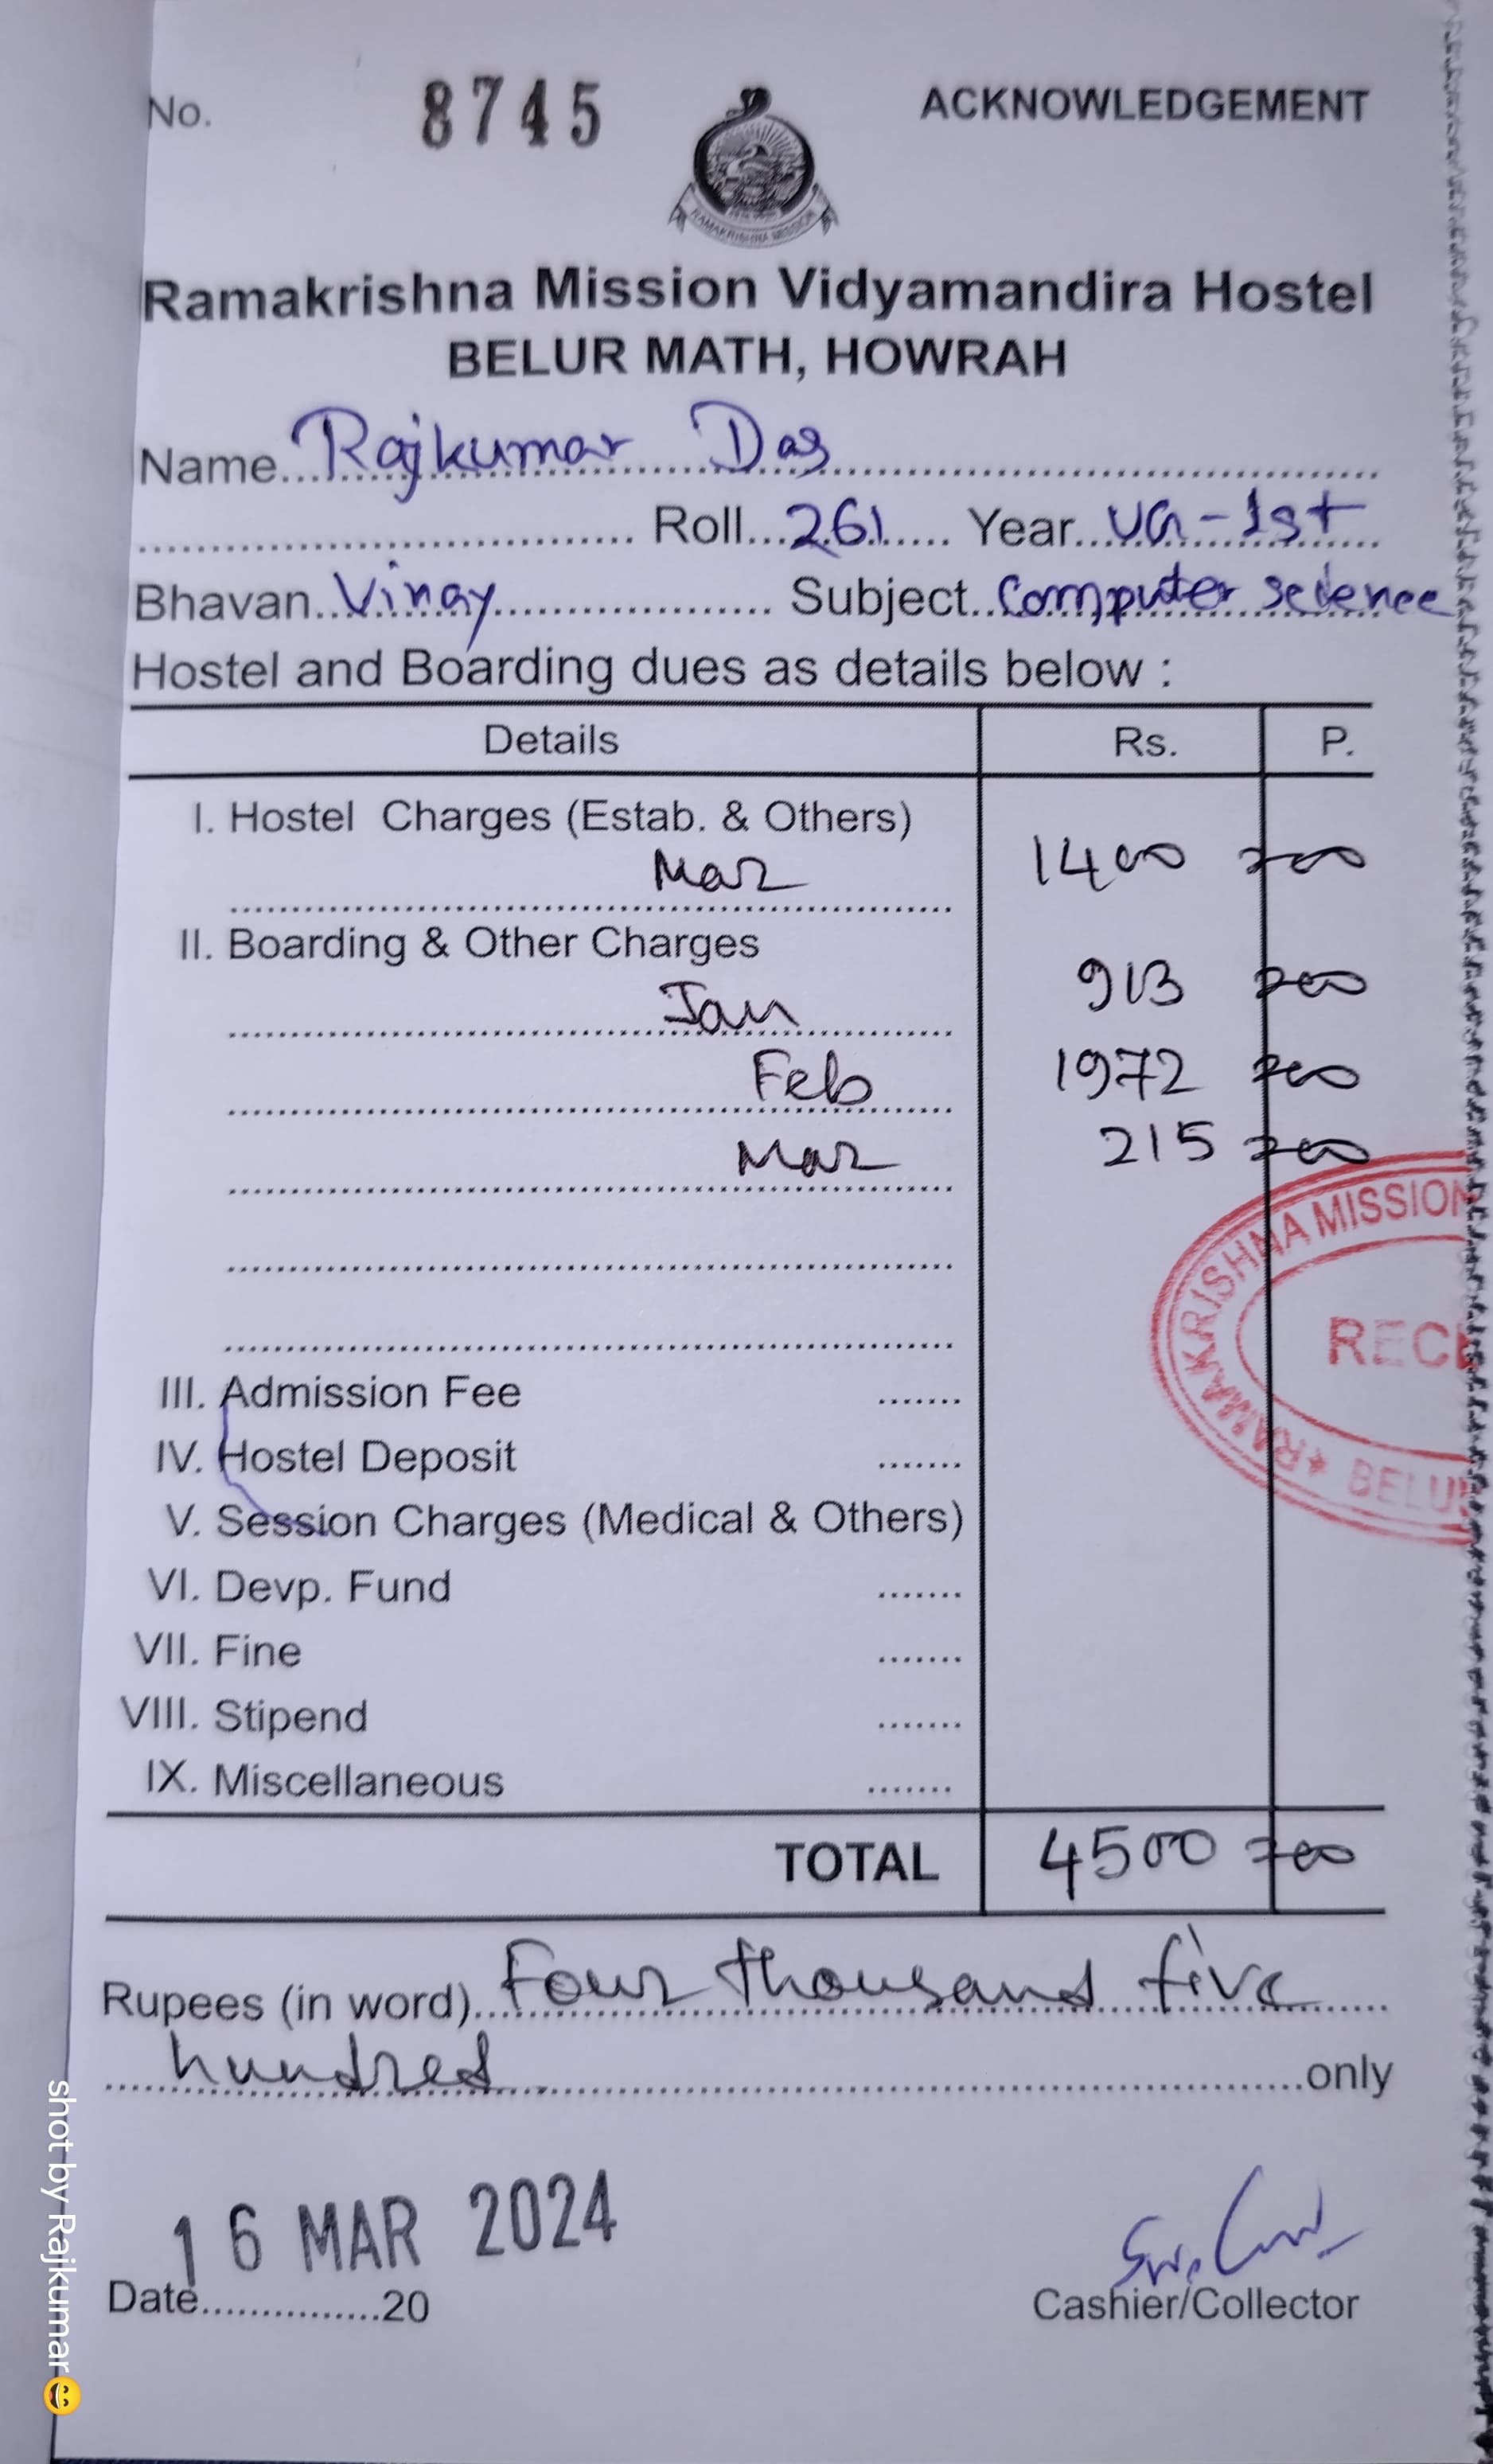 No. 8745 ACKNOWLEDGEMENT
RAMAKRISHNA MISSION
Ramakrishna Mission Vidyamandira Hostel
BELUR MATH, HOWRAH
Name Rajkumar Das
Roll 261 Year UG-1st
Bhavan Vinay Subject Computer science
Hostel and Boarding dues as details below :
Details Rs. P.
I. Hostel Charges (Estab. & Others)
Mar 1400 00
II. Boarding & Other Charges
Jan 913 00
Feb 1972 00
Mar 215 00
RAMAKRISHNA MISSION
REC
BELU
III. Admission Fee .......
IV. Hostel Deposit .......
V. Session Charges (Medical & Others)
VI. Devp. Fund .......
VII. Fine .......
VIII. Stipend .......
IX. Miscellaneous .......
TOTAL 4500 00
Rupees (in word) Four thousand five
hundred only
16 MAR 2024
Date...............20
Cashier/Collector
shot by Rajkumar😄